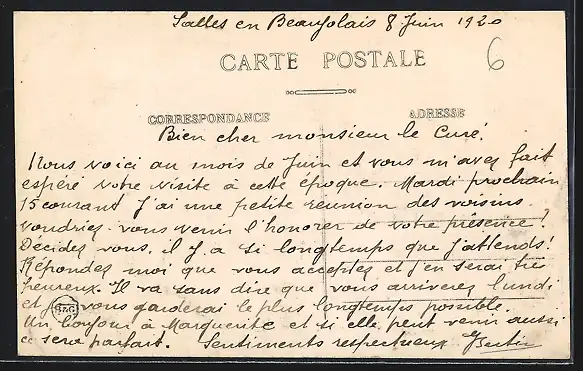 Salles en Beaujolais 8 Juin 1920
6
CARTE POSTALE
CORRESPONDANCE
ADRESSE
Bien cher monsieur le Curé.
Nous voici au mois de Juin et vous m'avez fait
espéré votre visite à cette époque. Mardi prochain
15 courant j'ai une petite réunion des voisins.
voudriez-vous venir l'honorer de votre présence?
Décidez vous, il y a si longtemps que j'attends!
Répondez moi que vous acceptez et j'en serai très
heureux. Il va sans dire que vous arriverez lundi
et vous garderai le plus longtemps possible.
Un bonjour à Marguerite et si elle peut venir aussi
ce sera parfait. Sentiments respectueux